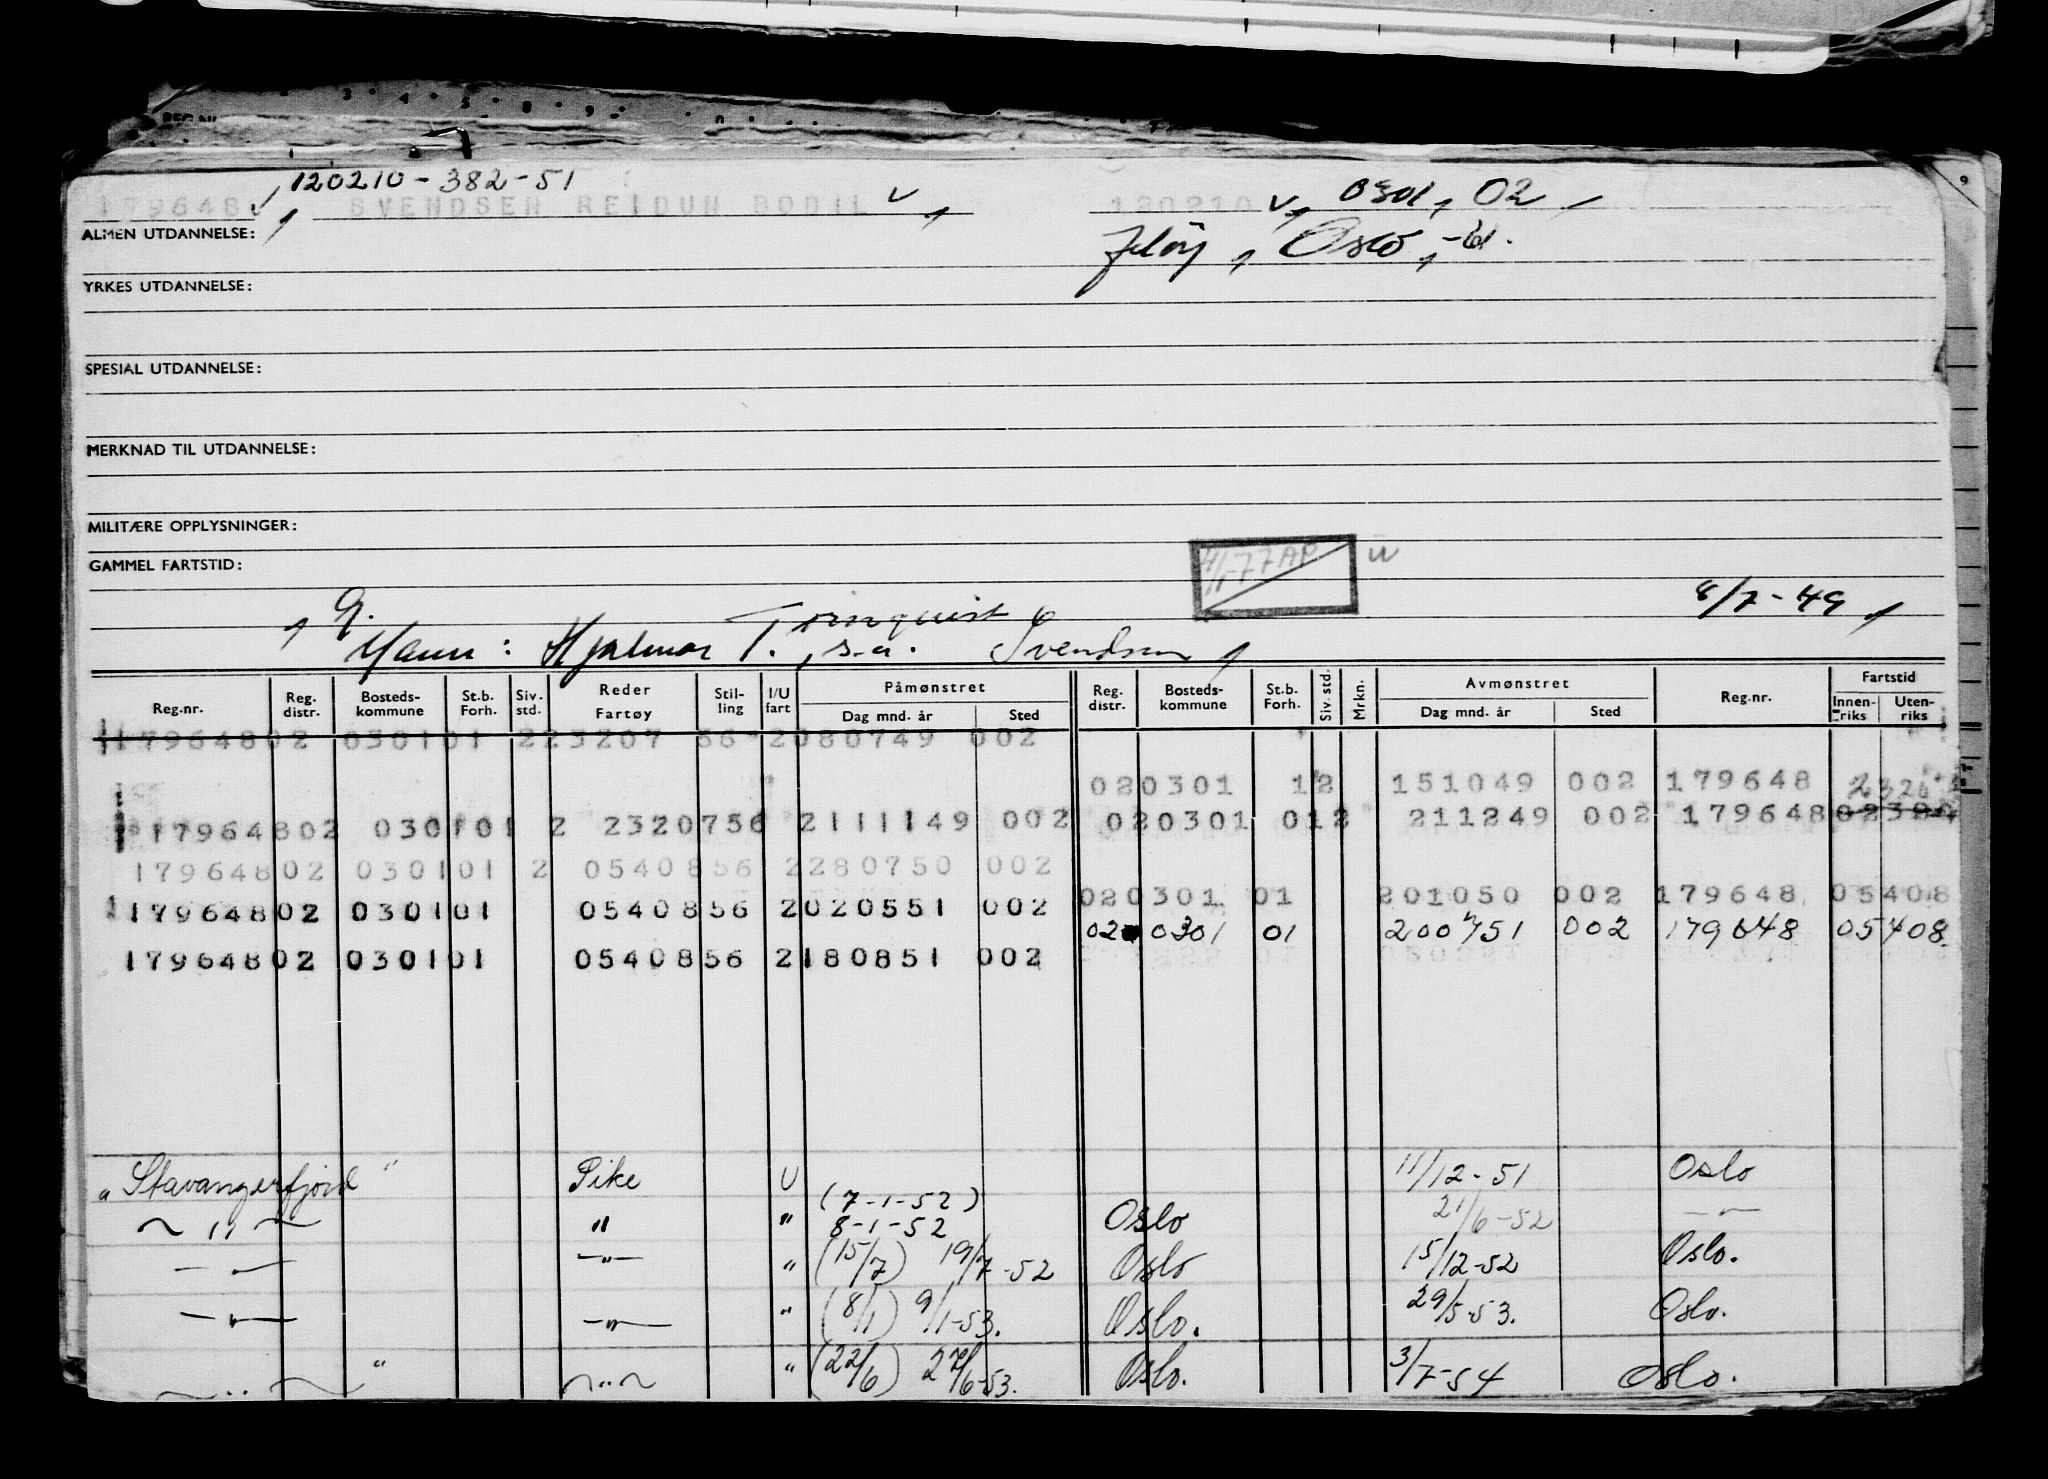 120210-382-51
179648 SVENDSEN REIDUN BODIL 120210 0301, 02
ALMEN UTDANNELSE: Jeløy, Oslo, -61.
YRKES UTDANNELSE:
SPESIAL UTDANNELSE:
MERKNAD TIL UTDANNELSE:
MILITÆRE OPPLYSNINGER:
GAMMEL FARTSTID:
4/1-77 AP u
g. Törnquist 8/7-49
Mann: Hjalmar T., s.a. Svendsen
Reg.nr. Reg. distr. Bosteds-kommune St.b. Forh. Siv. std. Reder Fartøy Stil-ling I/U fart Påmønstret Dag mnd. år Sted Reg. distr. Bosteds-kommune St.b. Forh. Siv. std. Mrkn. Avmønstret Dag mnd. år Sted Reg.nr. Fartstid Innen-riks Uten-riks
179648 02 0301 01 2 23207 56 2 080749 002
020301 12 151049 002 179648 2320
179648 02 0301 01 2 23207 56 2 111149 002 020301 012 211249 002 179648
179648 02 0301 01 2 05408 56 2 280750 002
020301 01 201050 002 179648 05408
179648 02 0301 01 05408 56 2 020551 002
02 0301 01 200751 002 179648 05408
179648 02 0301 01 05408 56 2 180851 002
"Stavangerfjord" Pike U 11/12-51 Oslo
(7-1-52)
~ " ~ " " 8-1-52 Oslo 21/6-52 - " -
- " - - " - " (15/7) 19/7-52 Oslo 15/12-52 Oslo.
- " - - " - " (8/1) 9/1-53. Oslo. 29/5-53. Oslo.
~ " ~ " ~ " ~ " (22/6) 6-53. Oslo. 3/7-54 Oslo.